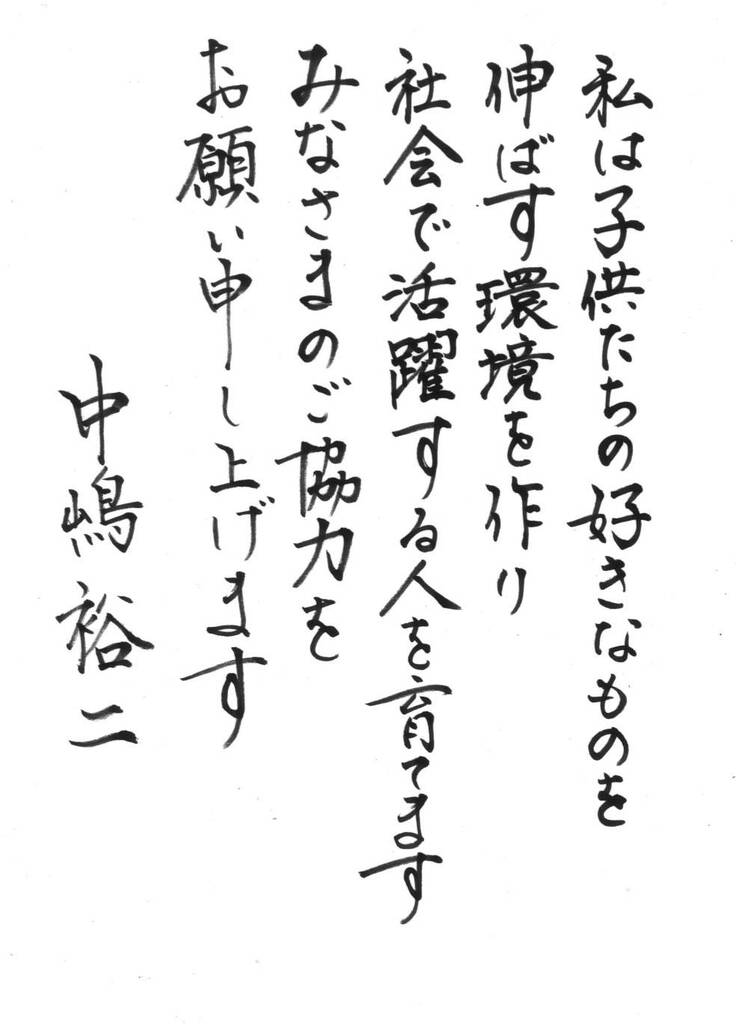 私は子供たちの好きなものを
伸ばす環境を作り
社会で活躍する人を育てます
みなさまのご協力を
お願い申し上げます
中嶋裕二